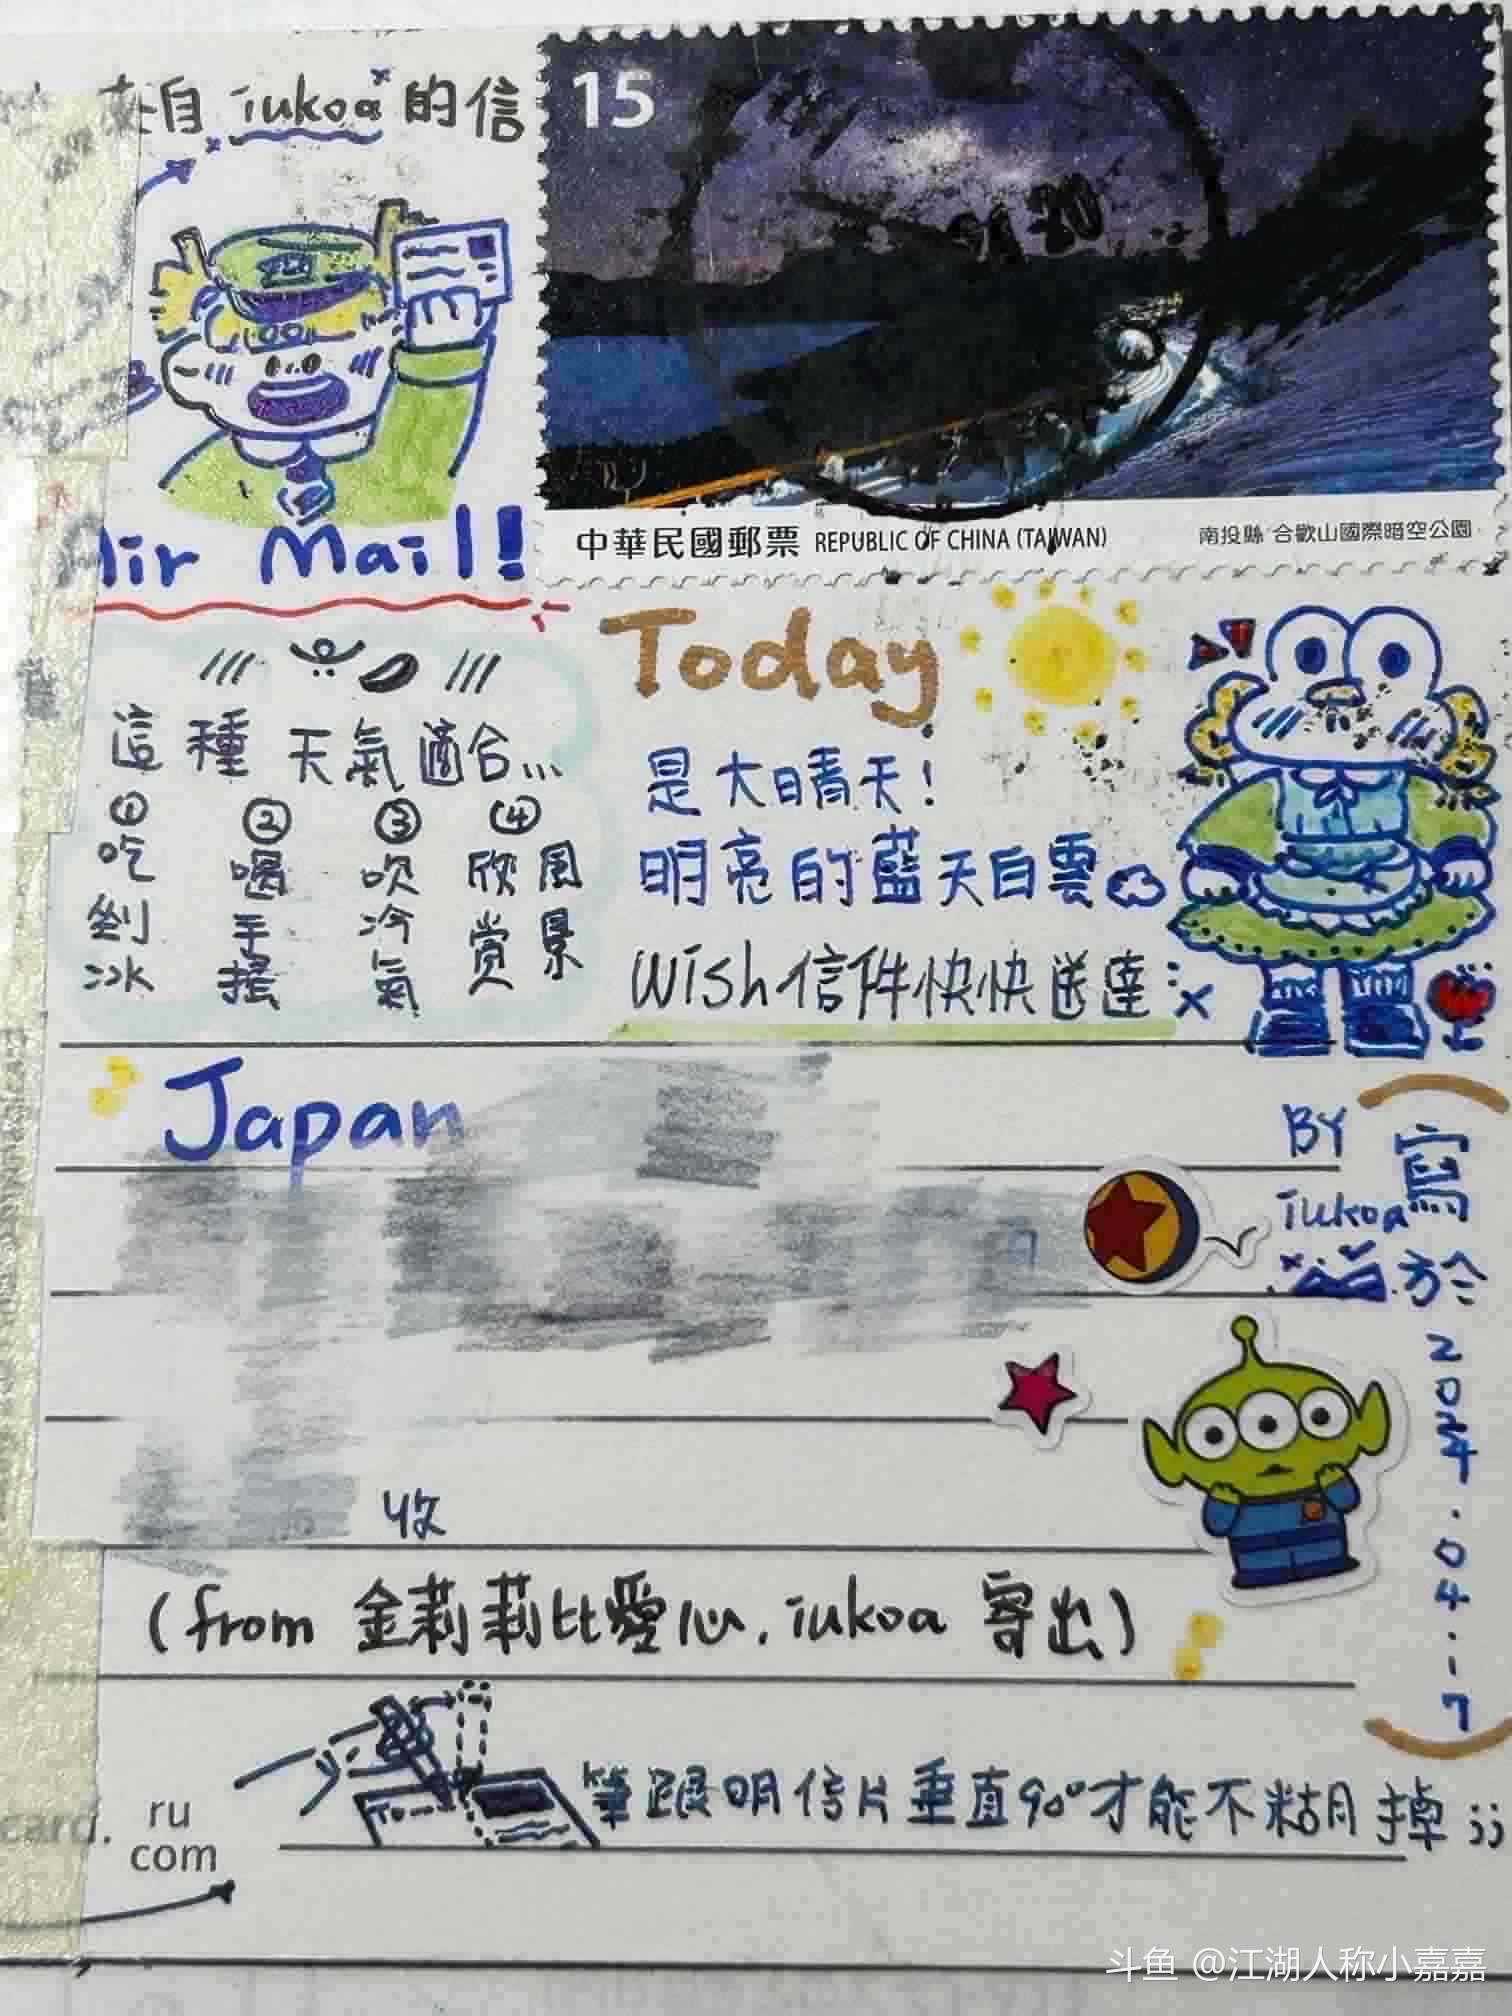 來自 iukoa 的信
15
Air Mail!
中華民國郵票 REPUBLIC OF CHINA (TAIWAN)
南投縣 合歡山國際暗空公園
這種天氣適合...
①吃剉冰
②喝手搖
③吹冷氣
④欣賞風景
Today
是大晴天!
明亮的藍天白雲
Wish信件快快送達
Japan
BY
iukoa
寫於2024.04.17
收
(from 金莉莉比愛心.iukoa 寄出)
筆跟明信片垂直90°才能不糊掉
card.
ru
com
斗鱼 @江湖人称小嘉嘉